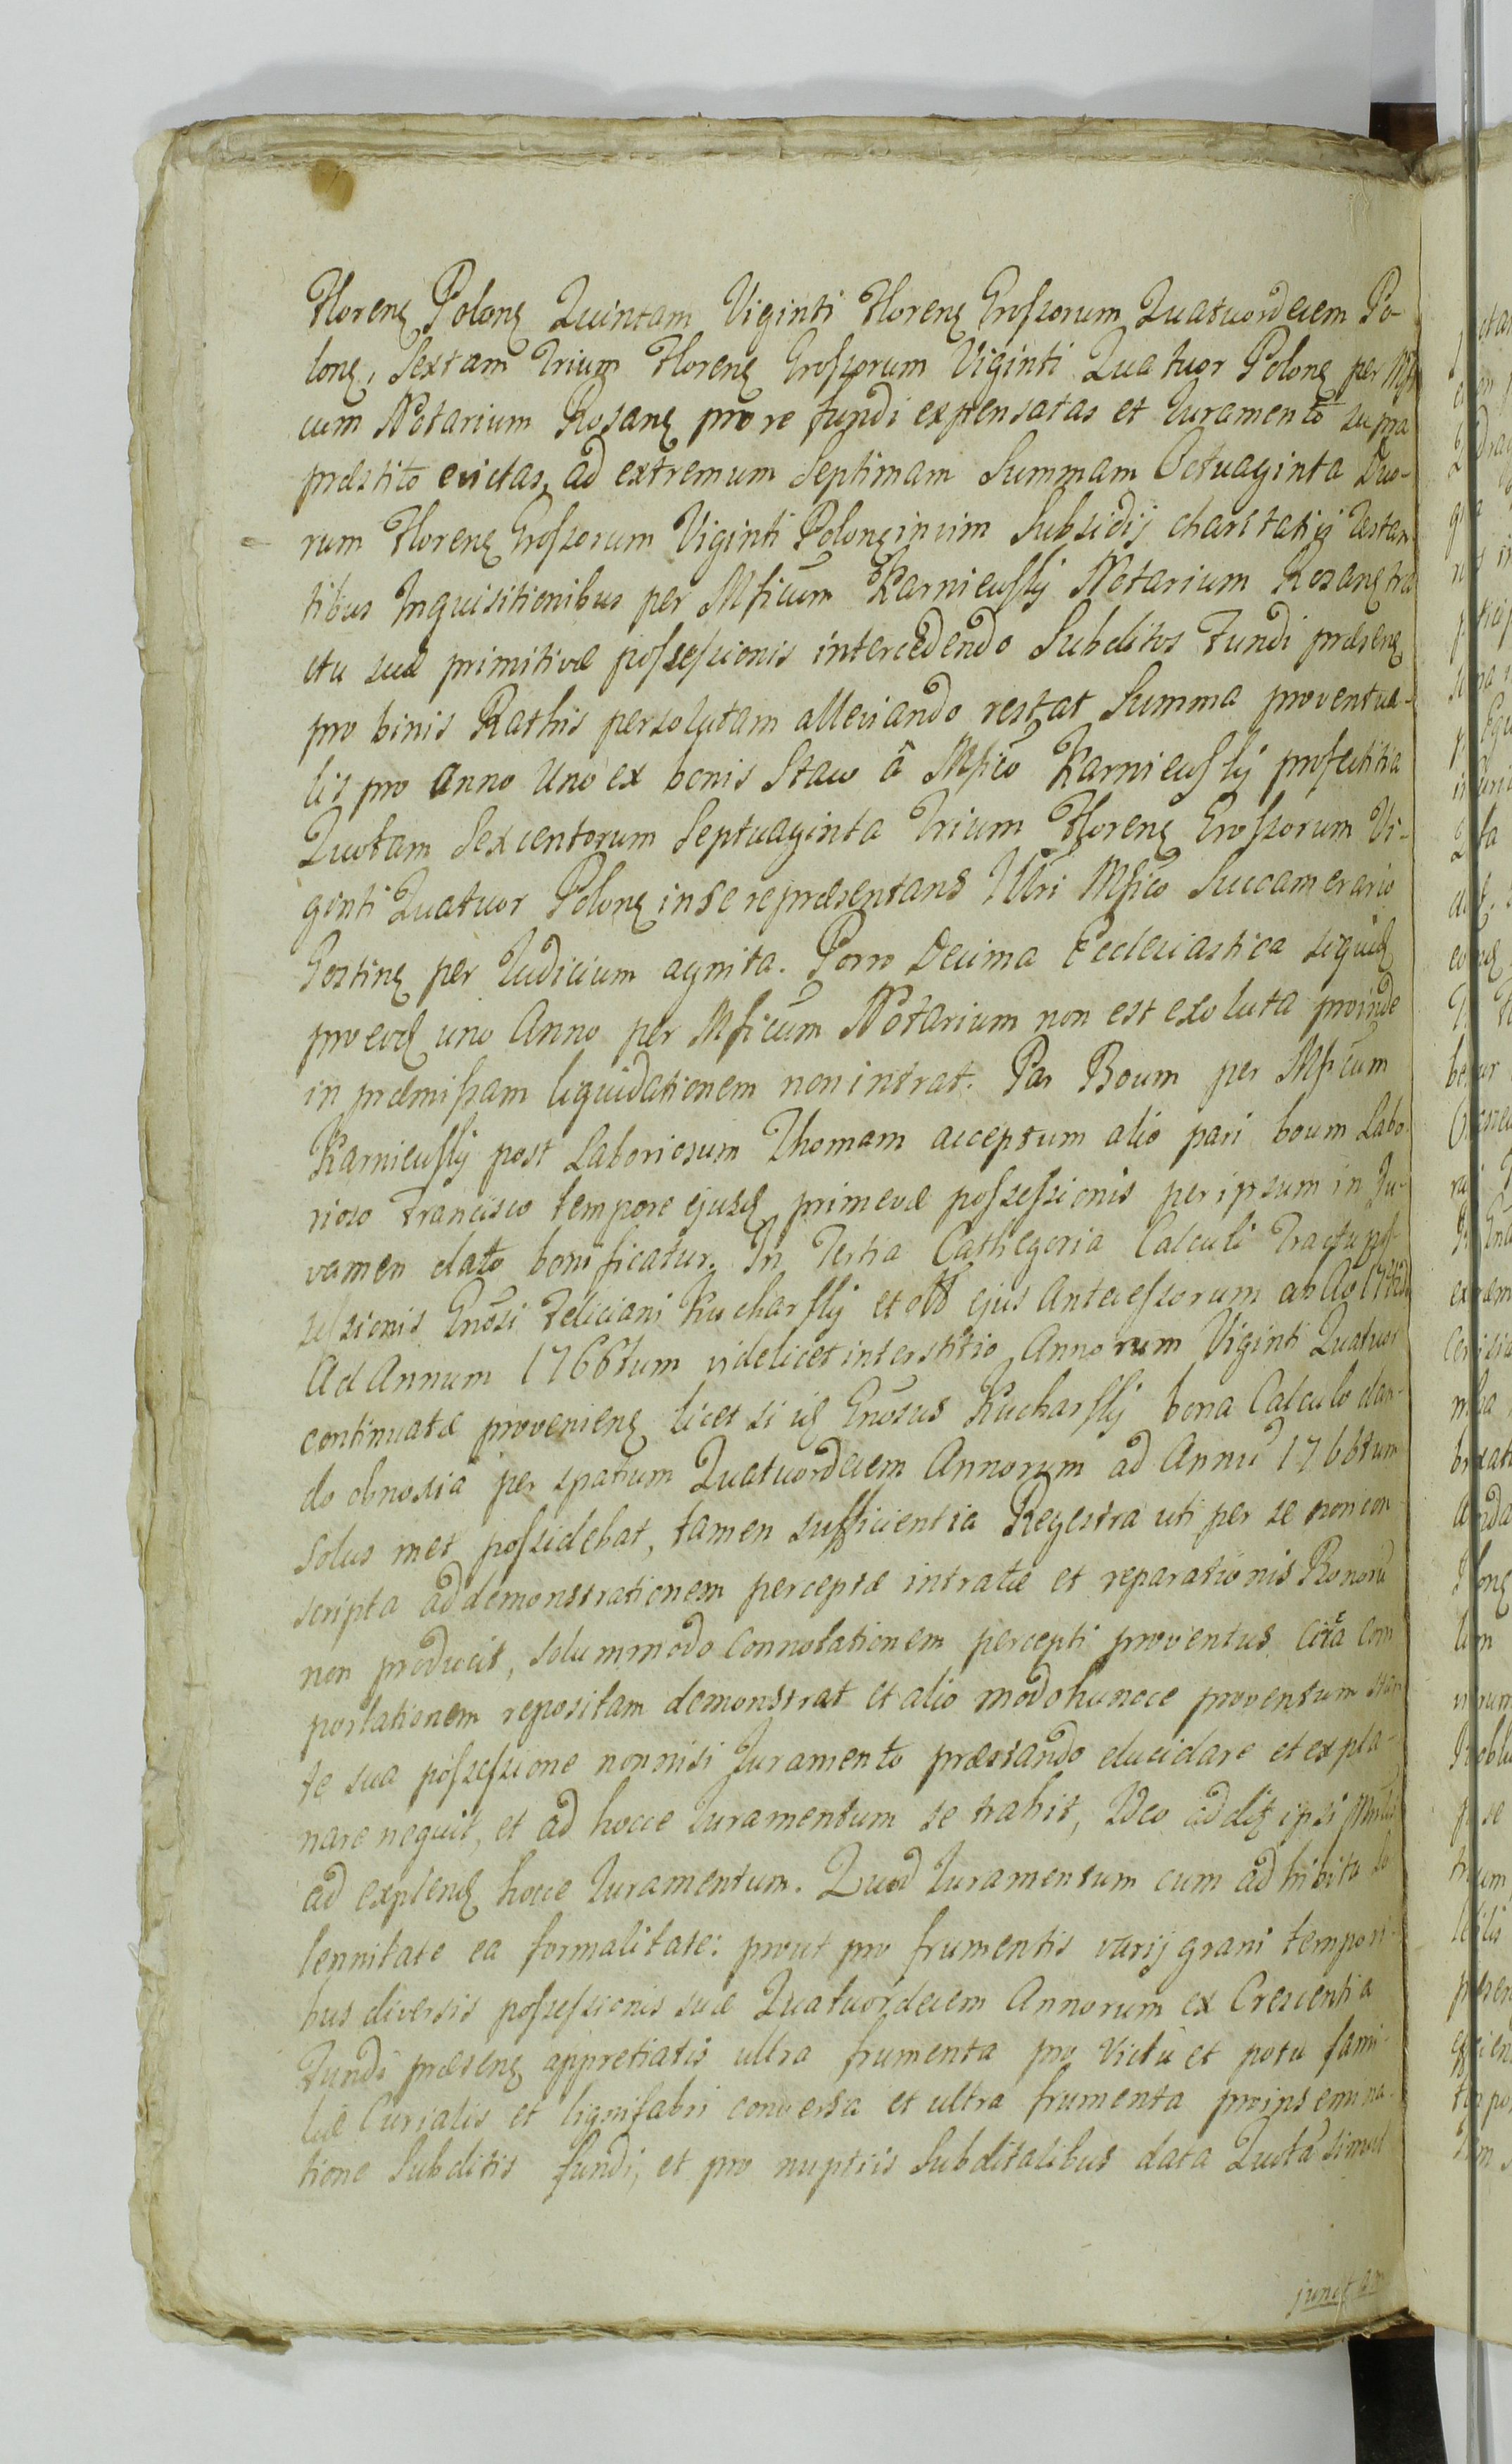 Floren Polon Quintam Viginti Floren Grossorum Quatuordecim Po-
lon, Sextam Trium Floren Grossorum Viginti Quatuor Polon per Mfi
cum Notarium Rosan pro re fundi expensatas et Juramento supra
præstito evictas, ad extremum Septimam Summam Octuaginta Duo-
rum Floren Grossorum Viginti Polon in vim Subsidij charitativi Testan
tibus Inquisitionibus per Mficum Karniewskij Notarium Rosan tra
ctu suæ primitivæ possessionis intercedendo Subditos Fundi præsen
pro binis Rathis persolutam alleviando restat Summa proventua-
lis pro anno Uno ex bonis Staw â Mfico Karniewskij profectitia
Quotam Sexcentorum Septuaginta Trium Floren Grossorum Vi-
ginti Quatuor Polon in se repræsentans Illri Mfico Succamerario
Gostin per Judicium agnita. Porro Decima Ecclesiastica siquid
pro eod uno Anno per Mficum Notarium non est exoluta proinde
in præmissam liquidationem non intrat. Par Boum per Mficum
Karniewskij post Laboriosum Thomam acceptum alio pari boum Labo
rioso Francisco tempore ejusd primevæ possessionis per ipsum in Ju-
vamen dato bonificatur. In Tertia Cathegoria Calculi Tractu pos-
sessionis Gnosi Feliciani Kucharskij et ejus Antecessorum ab Ao
Ad Annum 1766tum videlicet interstitio Annorum Viginti Quatuor
continuatæ provenien licet si is Gnosus Kucharskij bona Calculo dan-
do obnoxia per spatium Quatuordecem Annorum ad Annū 1766tum
solus met possidebat, tamen sufficientia Regestra uti per se non con
scripta ad demonstrationem perceptæ intratæ et reparationis Bonorū
non producit, solummodo Connotationem percepti proventus citra com
portationem repositam demonstrat et alio modo huncce proventum stan
te sua possessione nonnisi Juramento præstando elucidare et expla-
nare nequit, et ad hocce Juramentum se trahit, Ideo addit ipsi
ad explen hocce Juramentum. Quod Juramentum cum adhibita so
lennitate ea formalitate: prout pro frumentis varij grani tempori-
bus diversis possessionis suæ Quatuordecem Annorum ex Crescentia
Fundi præsen appretiatis ultra frumenta pro Victu et potu fami-
liæ Curialis et lignifabri conversa et ultra frumenta pro insemina-
tione Subditis fundi, et pro nuptiis Subditalibus data Quota simul
junctam